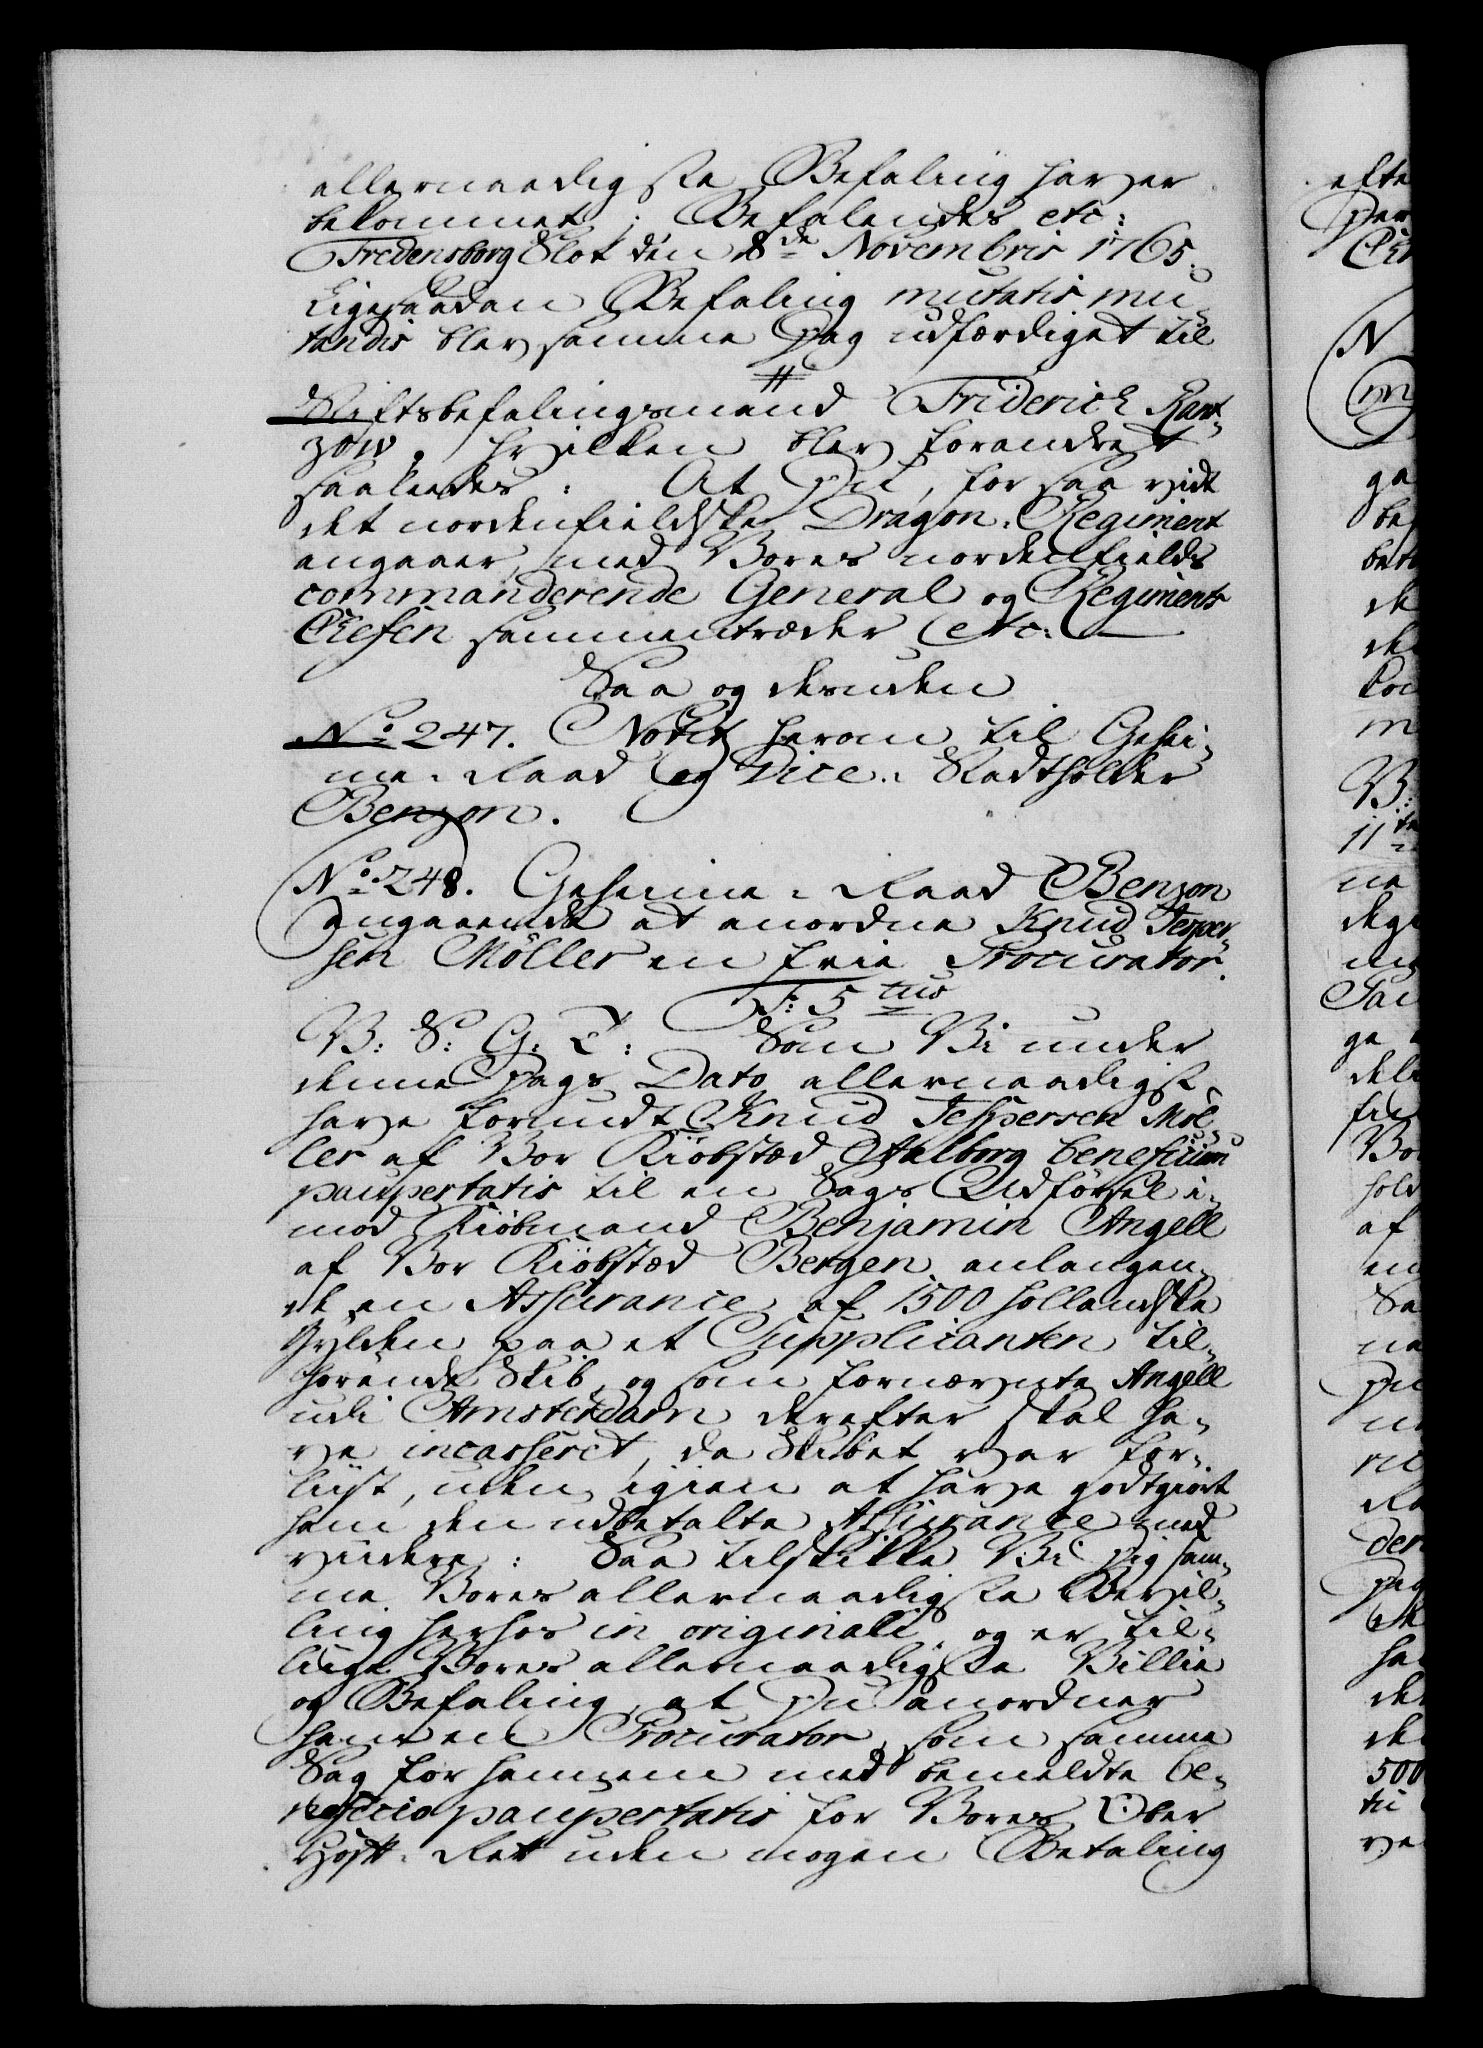 allernaadigste Befaling haver
bekommet; Befalendes etc:
Fredensborg Slot den 8de Novembris 1765.
Ligesaadan Befaling mutatis mu-
tandis blev samme Dag udfærdiget til
Stiftsbefalingsmand Friderich Rant-
zow, hvilken blev forandret
saaledes: At Du, for saa vidt
det nordenfieldske Dragon-Regiment
angaaer, med Vores nordenfields
commanderende General og Regiments
Chefen sammentræder etc:
Saa og desuden
No 247. Notit herom til Gehei-
me-Raad og Vice-Stadtholder
Benzon.
No 248. Geheime-Raad Benzon
angaaende at anordne Knud Jesper-
sen Möller en frie Procurator.
F: 5tus
V: S: G: T: Som Vi under
denne Dags Dato allernaadigst
have forundt Knud Jespersen Möl-
ler af Vor Kiöbstæd Aalborg beneficium
paupertatis til en Sags Udförsel i-
mod Kiöbmand Benjamin Angell
af Vor Kiöbstæd Bergen, anlangen-
de en Assurance af 1500 hollandske
Gylden paa et Supplicanten til-
hörende Skib, og som fornævnte Angell
udi Amsterdam derefter skal ha-
ve incasseret, da Skibet var for-
liist, uden igien at have godtgiort
ham den udbetalte Assurance med
videre: Saa tilskikke Vi Dig sam-
me Vores allernaadigste Bevil-
ling herhos in originali, og er til-
lige Vores allernaadigste Villie
og Befaling, at Du anordner
ham en Procurator, som samme
Sag for hannem med bemeldte be-
neficio paupertatis for Vores Ober
Hof-Ret uden nogen Betaling